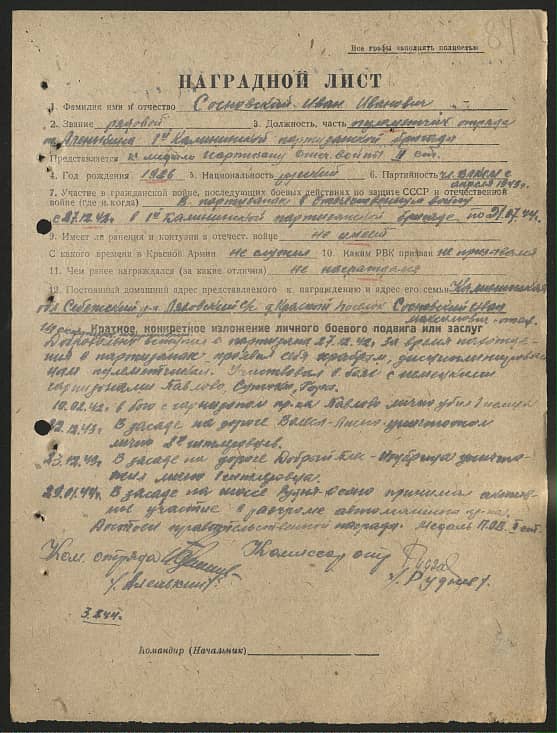 84
Все графы заполнять полностью
НАГРАДНОЙ ЛИСТ
1. Фамилия имя и отчество Сосновский Иван Иванович
2. Звание рядовой 3. Должность, часть пулеметчик отряда
1й Калининской партизанской бригады
Представляется к медали Партизану Отеч. войны II ст.
4. Год рождения 1926 5. Национальность русский 6. Партийность чл. ВЛКСМ с
апреля 1943 г.
7. Участие в гражданской войне, последующих боевых действиях по защите СССР и отечественной
войне (где и когда) В партизанах в Отечественную войну
с 27.12.42 г. в 1й Калининской партизанской бригаде по 07.44 г.
9. Имеет ли ранения и контузии в отечест. войне не имеет
С какого времени в Красной Армии не служил 10. Каким РВК призван не призывался
11. Чем ранее награждался (за какие отличия) не награждался
12. Постоянный домашний адрес представляемого к награждению и адрес его семьи Калининская
обл. Себежский р-н с/с д. Красный поселок Сосновский Иван
Максимович - отец
Краткое, конкретное изложение личного боевого подвига или заслуг
Добровольно вступил в партизаны 27.12.42 г. за время нахождения
в партизанах проявил себя храбрым, дисциплинированным
пулеметчиком. Участвовал в боях с немецкими
гарнизонами Павлово,
10.02.42 в бою с гарнизоном Павлово лично убил 1 немца
12.43 г. В засаде на дороге уничтожил
лично 2х гитлеровцев.
23.12.43 г. В засаде на дороге уничтожил
лично 1 гитлеровца.
29.01.44 г. В засаде на шоссе принимал активное
участие в разгроме автомашины
Достоин правительственной награды. Медаль П.О.В. II ст.
Ком. отряда Комиссар отр.
/Аленький/ /Руднев/
3.2.44 г.
Командир (Начальник)